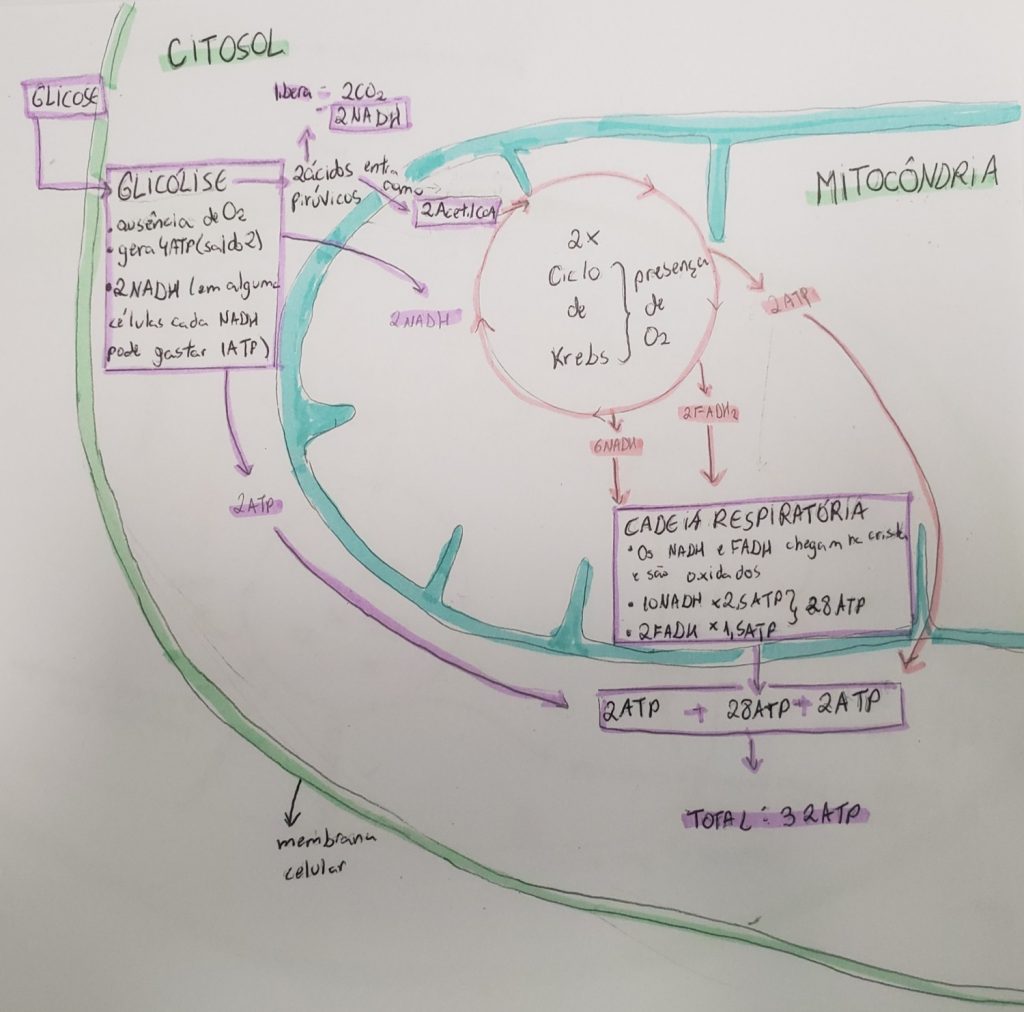 CITOSOL
GLICOSE
libera = 2CO2
2NADH
GLICÓLISE
• ausência de O2
• gera 4ATP (saldo 2)
• 2NADH (em alguma
células cada NADH
pode gastar 1ATP)
2 ácidos entra
pirúvicos como
2 Acetil CoA
MITOCÔNDRIA
2x
Ciclo
de
Krebs
presença
de
O2
2NADH
2ATP
2FADH2
6NADH
2ATP
CADEIA RESPIRATÓRIA
• Os NADH e FADH chegam na crista
e são oxidados
• 10NADH x 2,5ATP } 28ATP
• 2FADH x 1,5ATP
2ATP + 28ATP + 2ATP
TOTAL: 32ATP
membrana
celular